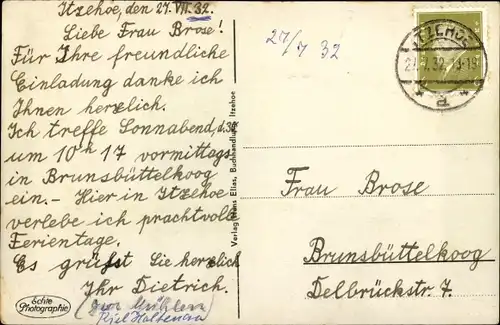 Itzehoe, den 27. VII. 32.
Liebe Frau Brose!
Für Ihre freundliche
Einladung danke ich
Ihnen herzlich.
Ich treffe Sonnabend, d. 30.
um 10h 17 vormittags
in Brunsbüttelkoog
ein. – Hier in Itzehoe
verlebe ich prachtvolle
Ferientage.
Es grüßt Sie herzlich
Ihr Dietrich.
(zur Mühlen
Kiel Holtenau
Echte
Photographie
Verlag Hans Elias, Buchhandlung, Itzehoe
27/7 32
ITZEHOE
32
Frau Brose
Brunsbüttelkoog
Delbrückstr. 7.